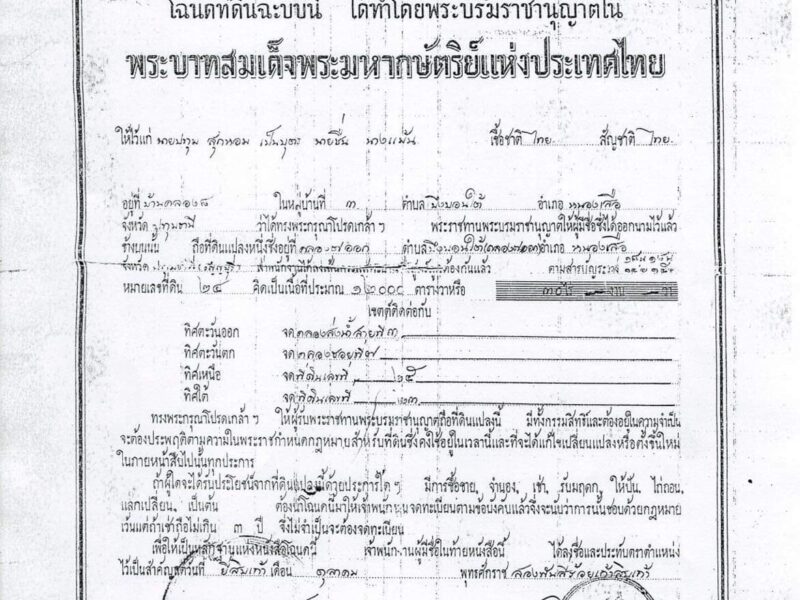 โฉนดที่ดินฉะบับนี้ ได้ทำโดยพระบรมราชานุญาตใน
พระบาทสมเด็จพระมหากษัตริย์แห่งประเทศไทย
ให้ไว้แก่ นายปทุม สุกหอม เป็นบุตร นายชื่น นางแม้น เชื้อชาติ ไทย สัญชาติ ไทย
อยู่ที่ บ้านคลอง ๘ ในหมู่บ้านที่ ๓ ตำบล บึงบอนใต้ อำเภอ หนองเสือ
จังหวัด ปทุมธานี ว่าได้ทรงพระกรุณาโปรดเกล้า ฯ พระราชทานพระบรมราชานุญาตให้ผู้มีชื่อซึ่งได้ออกนามไว้แล้ว
ข้างบนนั้น ถือที่ดินแปลงหนึ่งซึ่งอยู่ที่ คลอง ๗ ออก ตำบล บึงบอนใต้(คลอง ๗ ออก) อำเภอ หนองเสือ
จังหวัด ต้องกันแล้ว ตามสารบัญระวาง
หมายเลขที่ดิน ๒๔ คิดเป็นเนื้อที่ประมาณ ๑๒๐๐๐ ตารางวาหรือ ๓๐ ไร่ — งาน — วา
เขตต์ติดต่อกับ
ทิศตะวันออก จด คลองส่งน้ำสายที่ ๓
ทิศตะวันตก จด คลองซอยที่ ๗
ทิศเหนือ จด ที่ดินเลขที่ ๒๕
ทิศใต้ จด ที่ดินเลขที่ ๒๓
ทรงพระกรุณาโปรดเกล้า ฯ ให้ผู้รับพระราชทานพระบรมราชานุญาตถือที่ดินแปลงนี้ มีทั้งกรรมสิทธิและต้องอยู่ในความจำเป็น
จะต้องประพฤติตามความในพระราชกำหนดกฎหมายสำหรับที่ดินซึ่งคงใช้อยู่ในเวลานี้และที่จะได้แก้ไขเปลี่ยนแปลงหรือตั้งขึ้นใหม่
ในภายหน้าสืบไปนั้นทุกประการ
ถ้าผู้ใดจะได้รับประโยชน์จากที่ดินแปลงนี้ด้วยประการใด ๆ มีการซื้อขาย, จำนอง, เช่า, รับมฤดก, ให้ปัน, ไถ่ถอน,
แลกเปลี่ยน, เป็นต้น ต้องนำโฉนดนี้มาให้เจ้าพนักงานจดทะเบียนตามข้อบังคับแล้วจึ่งจะนับว่าการนั้นชอบด้วยกฎหมาย
เว้นแต่ถ้าเช่าถือไม่เกิน ๓ ปี จึ่งไม่จำเป็นจะต้องจดทะเบียน
เพื่อให้เป็นหลักฐานแห่งหนังสือโฉนดนี้ เจ้าพนักงานผู้มีชื่อในท้ายหนังสือนี้ ได้ลงชื่อและประทับตราตำแหน่ง
ไว้เป็นสำคัญแต่วันที่ ยี่สิบเก้า เดือน ตุลาคม พุทธศักราช สองพันสี่ร้อยเก้าสิบเก้า